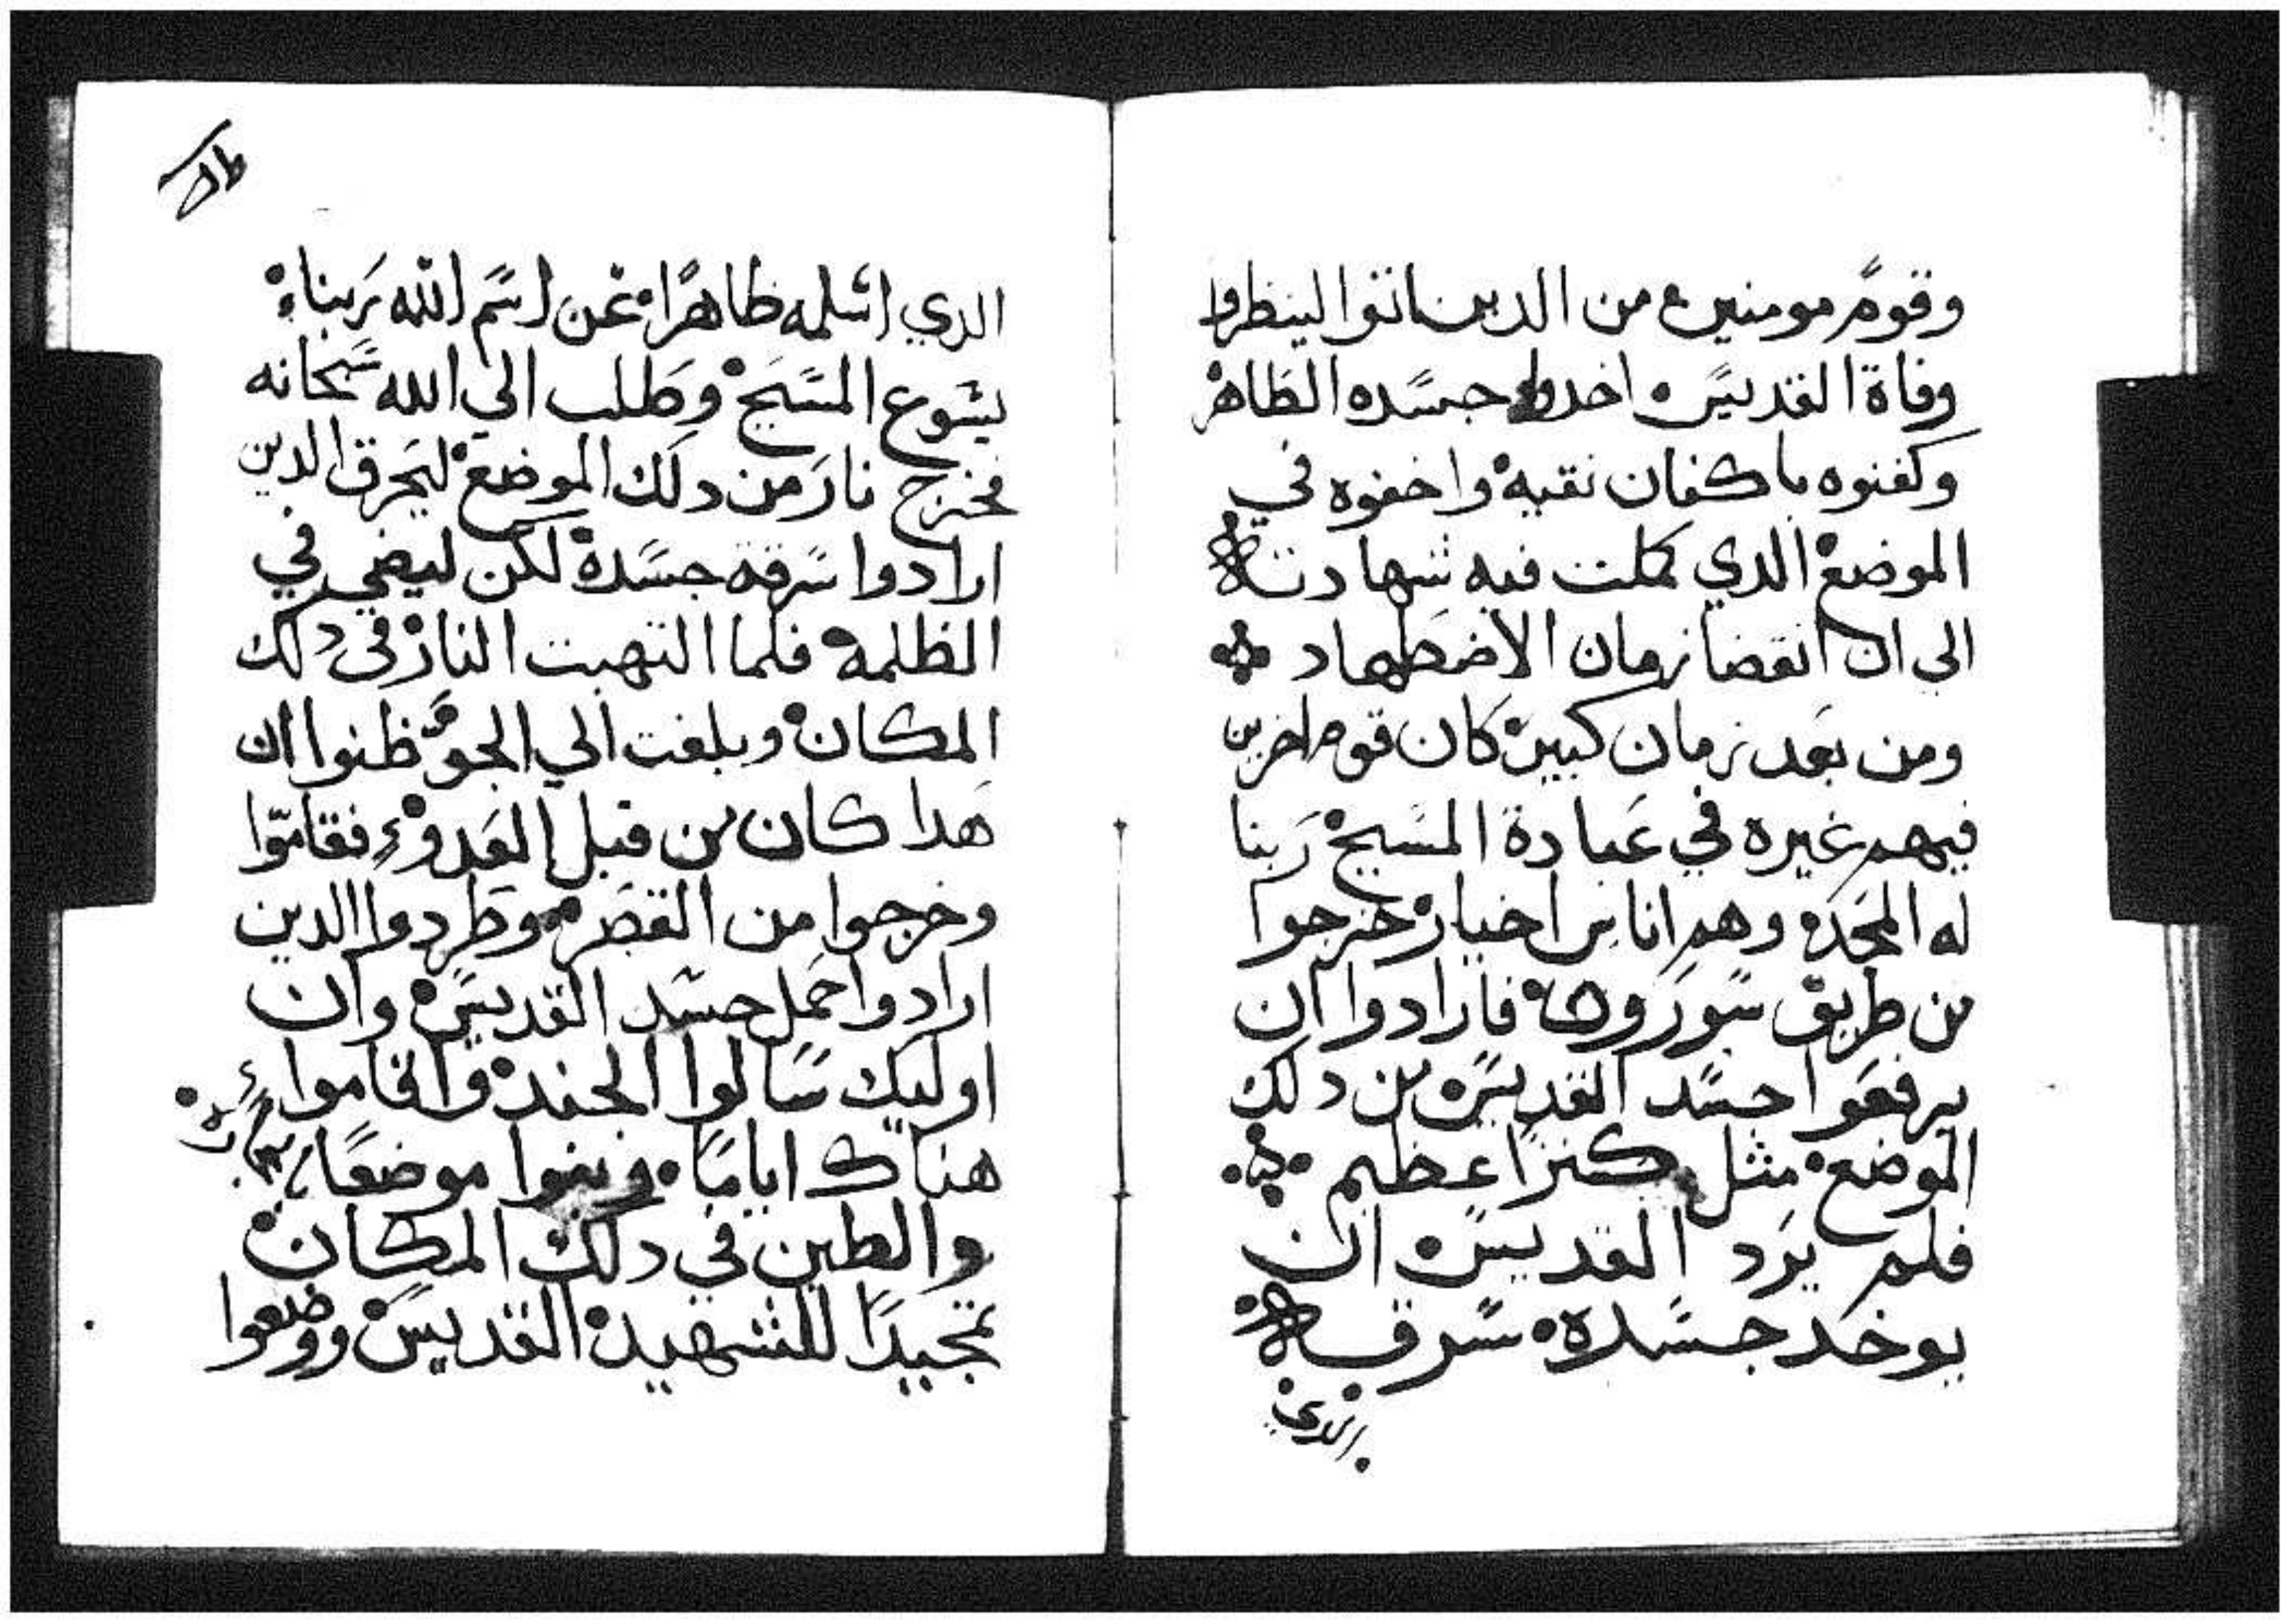 وقوم مومنين من الدين اتوا لينظروا
وفاة القديس اخدوا جسده الطاهر
وكفنوه باكفان نقيه واخفوه في
الموضع الدي كملت فيه شهادته
الي ان انقضا زمان الاضطهاد
ومن بعد زمان كبير كان قوم اخرين
فيهم غيره في عبادة المسيح ربنا
له المجد وهم اناس اخيار خرجوا
من طريق سوريه فارادوا ان
يرفعوا جسد القديس من دلك
الموضع مثل كنزا عظيم
فلم يرد القديس ان
يوخد جسده سرقه
الدي
الدي اسلمه ظاهرا عن اسم الله ربنا
يشوع المسيح وطلب الي الله سبحانه
فخرج نار من دلك الموضع ليحرق الدين
ارادوا سرقه جسده لكن ليضي في
الظلمه فلما التهبت النار في دلك
المكان وبلغت الي الجو ظنوا ان
هدا كان من قبل العدو فقاموا
وخرجوا من القصر وطردوا الدين
ارادوا حمل جسد القديس وان
اوليك سالوا الجند واقاموا
هناك اياما وبنوا موضعا بالحجاره
والطين في دلك المكان
تمجيدا للشهيد القديس ووضعوا